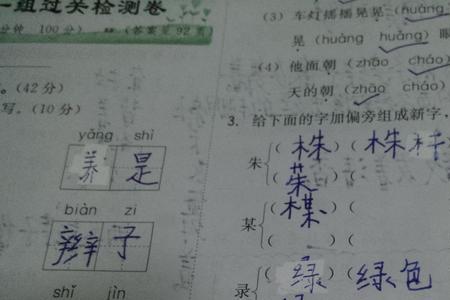 一组过关检测卷
分钟 100分) (答案见92页
。(42分)
写。(10分)
yǎng shì
养 是
biàn zi
辫 子
shǐ jìn
(3) 车灯摇摇晃晃 (huǎng
晃 (huǎng huàng) 眼
(4) 他面朝 (zhāo cháo)
天的朝 (zhāo cháo)
3. 给下面的字加偏旁组成新字,
朱 (株) (株杆
(茱
某 (楳) (
( ) (
录 (绿) (绿色